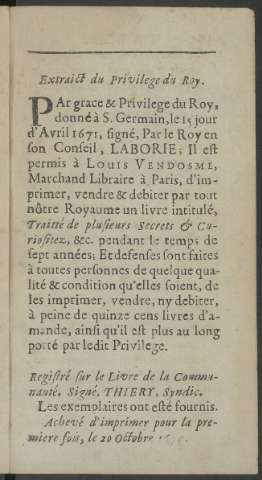 Extraict du Privilege du Roy.
PAr grace & Privilege du Roy,
donné à S. Germain, le 15 jour
d'Avril 1671, signé, Par le Roy en
son Conseil, LABORIE; Il est
permis à LOUIS VENDOSME,
Marchand Libraire à Paris, d'im-
primer, vendre & debiter par tout
nôtre Royaume un livre intitulé,
Traitté de plusieurs Secrets & Cu-
riositez, &c. pendant le temps de
sept années; Et defenses sont faites
à toutes personnes de quelque qua-
lité & condition qu'elles soient, de
les imprimer, vendre, ny debiter,
à peine de quinze cens livres d'a-
mande, ainsi qu'il est plus au long
porté par ledit Privilege.
Registré sur le Livre de la Commu-
nauté. Signé, THIERY, Syndic.
Les exemplaires ont esté fournis.
Achevé d'imprimer pour la pre-
miere fois, le 20 Octobre